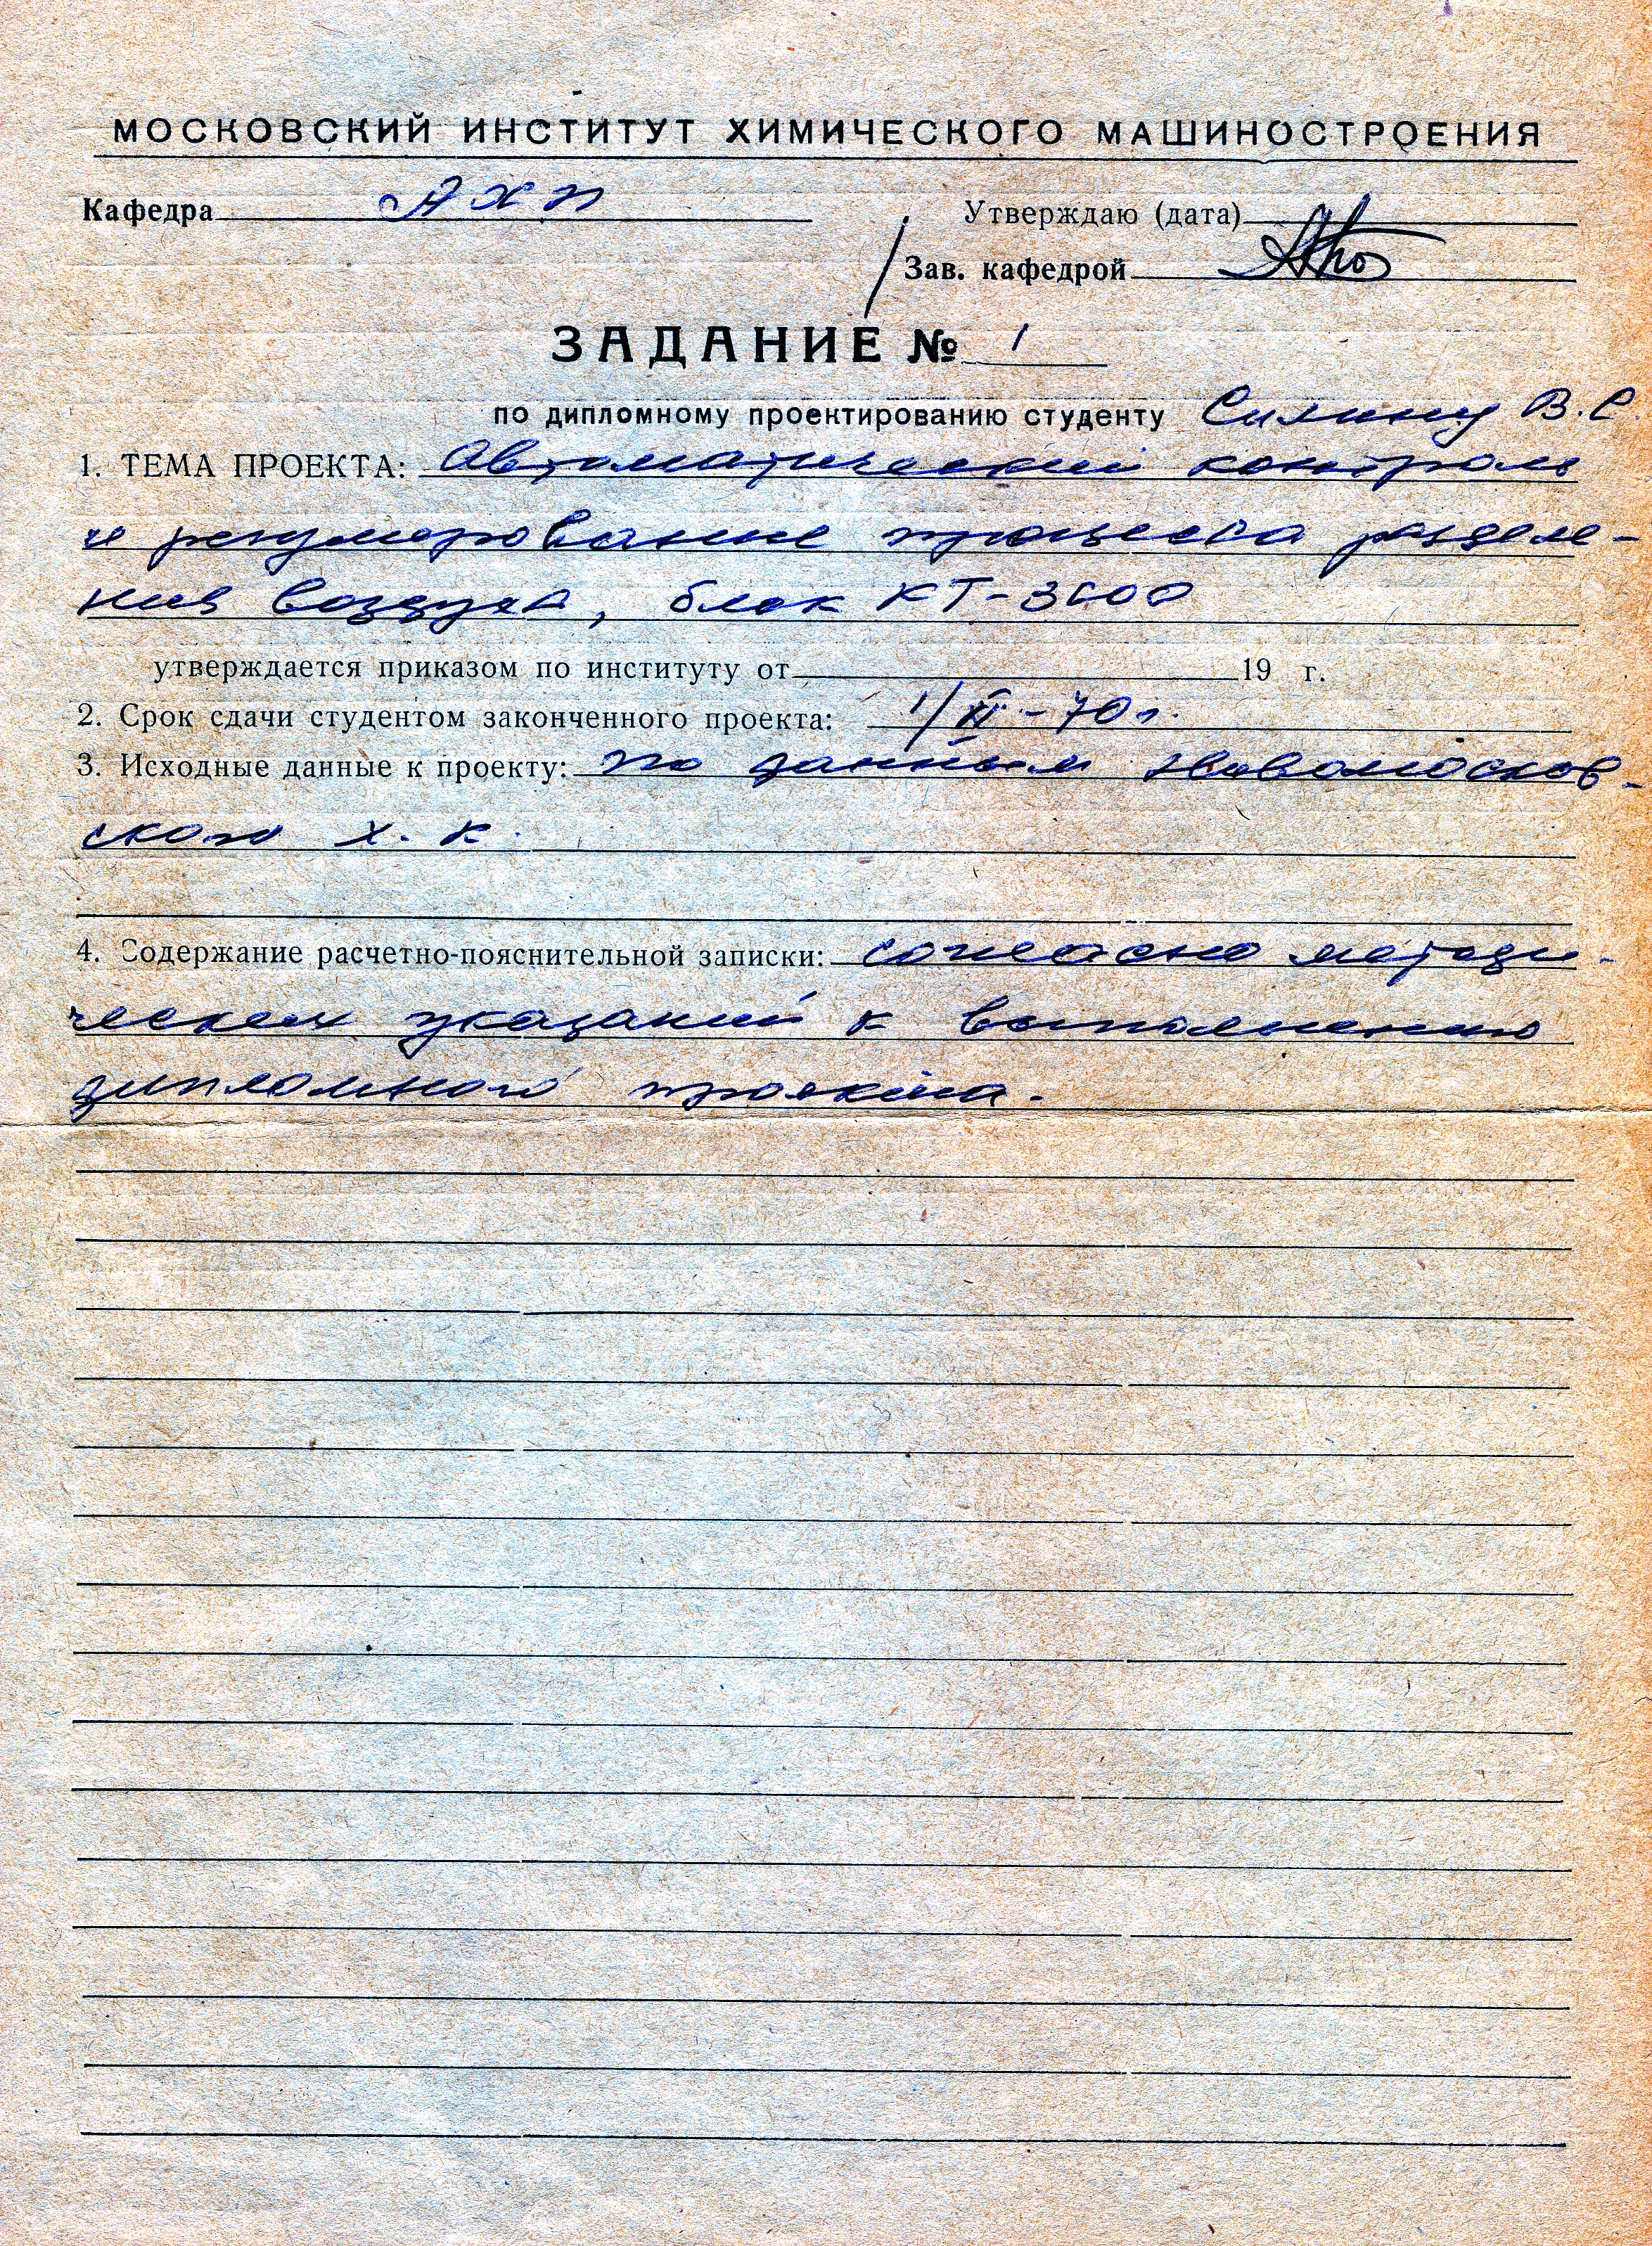 МОСКОВСКИЙ ИНСТИТУТ ХИМИЧЕСКОГО МАШИНОСТРОЕНИЯ
Кафедра АХП
Утверждаю (дата)
Зав. кафедрой
ЗАДАНИЕ № 1
по дипломному проектированию студенту Силину В.С.
1. ТЕМА ПРОЕКТА: Автоматический контроль
и регулирование процесса разделе-
ния воздуха, блок КТ-3600
утверждается приказом по институту от 19 г.
2. Срок сдачи студентом законченного проекта: 1/II-70 г.
3. Исходные данные к проекту: по данным Новомосков-
ского х. к.
4. Содержание расчетно-пояснительной записки: согласно методи-
ческих указаний к выполнению
дипломного проекта.